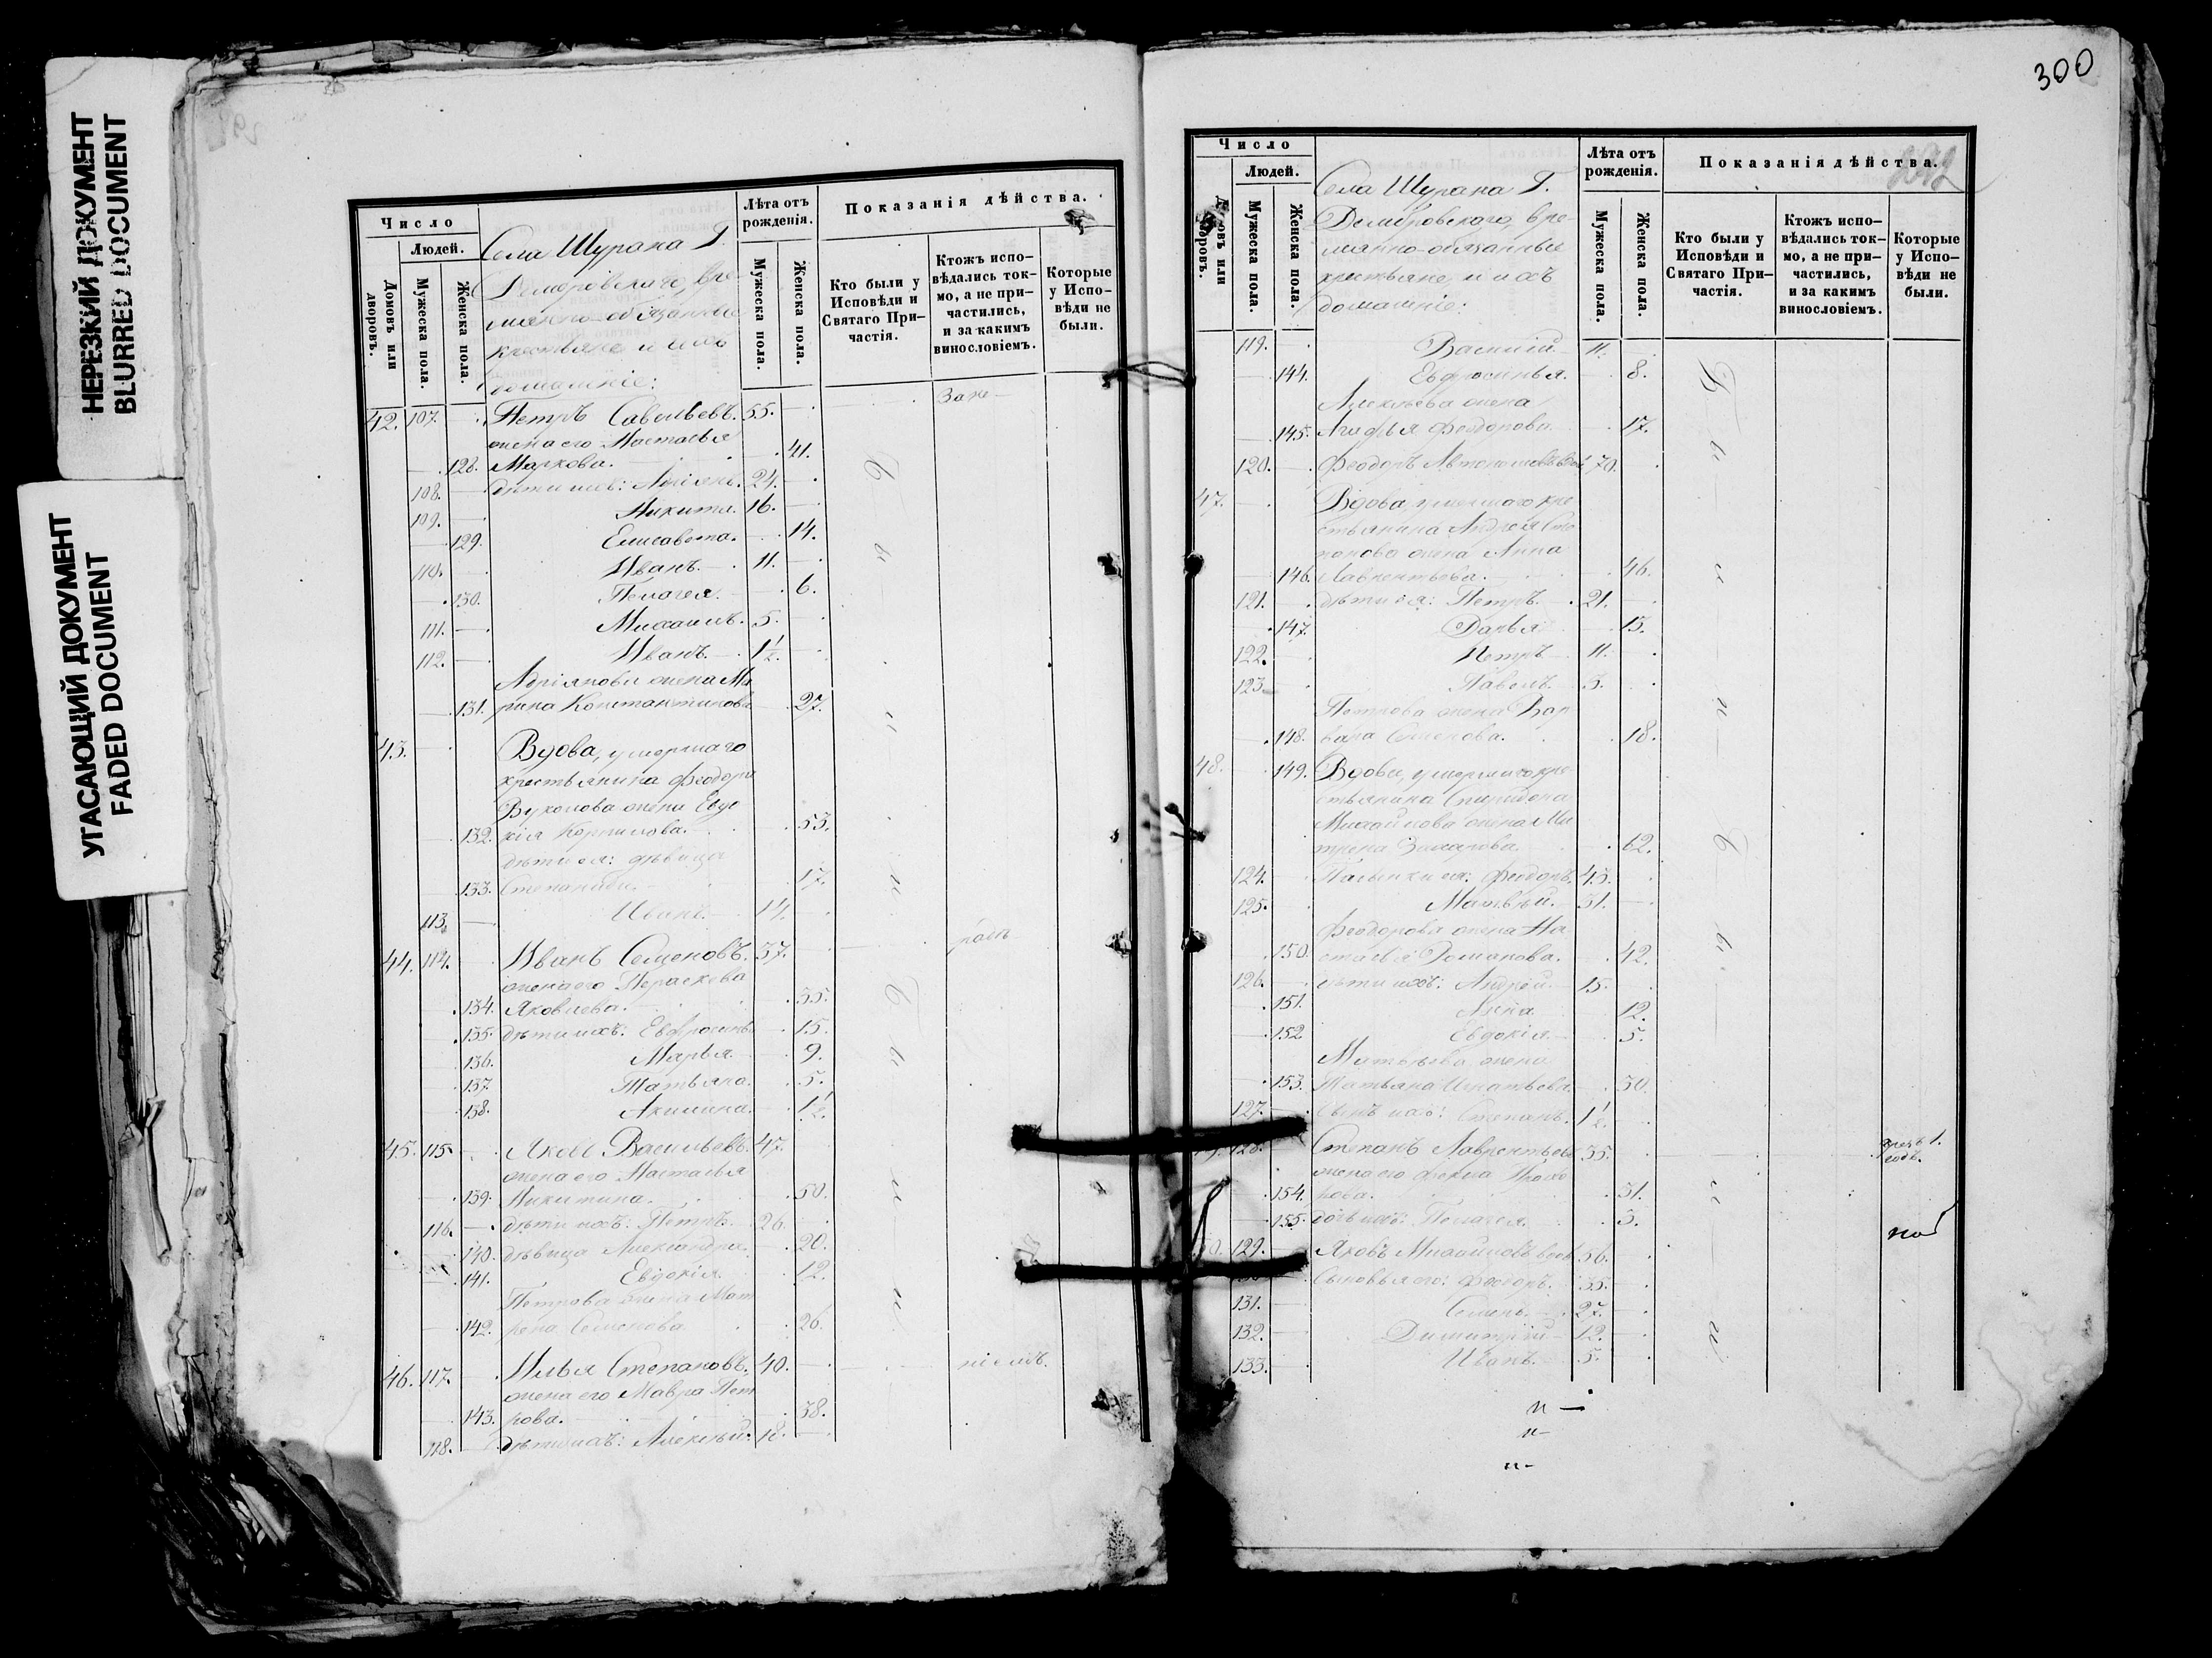 НЕРЕЗКИЙ ДОКУМЕНТ
BLURRED DOCUMENT
УГАСАЮЩИЙ ДОКУМЕНТ
FADED DOCUMENT
Число
Людей.
Домовъ или дворовъ.
Мужеска пола.
Женска пола.
Села Шурана Г.
крестьяне и ихъ
домашніе:
Лѣта отъ рожденія.
Мужеска пола.
Женска пола.
Показанія дѣйства.
Кто были у Исповѣди и Святаго При-частія.
Ктожъ испо-вѣдались ток-мо, а не при-частились, и за какимъ винословіемъ.
Которые у Испо-вѣди не были.
42. 107. Петръ Савельевъ. 55.
жена его Настасья
128. Маркова. 41.
108. дѣти ихъ: Адріянъ. 24.
109. Никита. 16.
129. Елисавета. 14.
110. Иванъ. 11.
130. Пелагея. 6.
111. Михаилъ. 5.
112. Иванъ. 1½.
Адріянова жена Ма
131. рина Константинова 27.
43. Вдова, умершаго
крестьянина Феодора
Вуколова жена Евдо
132. кія Корнилова. 53.
дѣти ея: дѣвица
133. Степанида. 17.
113. Иванъ. 14.
44. 114. Иванъ Семеновъ. 37.
жена его Параскева
134. Яковлева. 35.
135. дѣти ихъ: Евфросинья 15.
136. Марья. 9.
137. Татьяна. 5.
138. Акилина. 1½.
45. 115. Яковъ Васильевъ. 47.
жена его Настасья
139. Никитина. 50.
116. дѣти ихъ: Петръ. 26.
140. дѣвица Александра. 20.
141. Евдокія. 12.
Петрова жена Мат
142. рена Семенова 26.
46. 117. Илья Степановъ. 40.
жена его Мавра Пет
143. рова. 38.
118. дѣти ихъ: Алексѣй. 18.
300
Число
Людей.
Мужеска пола.
Женска пола.
Села Шурана Г.
вре-
мянно-обязанные
крестьяне и ихъ
домашніе:
Лѣта отъ рожденія.
Мужеска пола.
Женска пола.
Показанія дѣйства.
Кто были у Исповѣди и Святаго При-частія.
Ктожъ испо-вѣдались ток-мо, а не при-частились, и за какимъ винословіемъ.
Которые у Испо-вѣди не были.
119. Василій 11.
144. Евфросинья. 8.
Алексѣева жена
145. Агафья Феодорова. 17.
120. Феодоръ 70.
47. Вдова, умершаго кре
стьянина Андрея
жена Анна
146. Лаврентьева. 46.
121. дѣти ея: Петръ. 21.
147. Дарья 15.
122. Петръ 11.
123. Павелъ. 3.
Петрова жена Вар
148. вара Семенова. 18.
48. 149. Вдова, умершаго кре
стьянина Спиридона
Михайлова жена Ма
трена Захарова. 62.
124. Пасынки ея: Феодоръ. 43.
125. Матвѣй. 31.
Феодорова жена На
150. стасья Романова. 42.
126. дѣти ихъ: Андрей. 15.
151. Анна 12.
152. Евдокія. 5.
Матвѣева жена
153. Татьяна Игнатьева. 30.
127. сынъ ихъ: Степанъ. 1½.
128. Степанъ Лаврентьевъ 35.
жена его Фекла Прохо
154. рова. 31.
155. дочь ихъ: Пелагея. 3.
129. Яковъ Михайловъ вдов. 56.
Сыновья его: Феодоръ. 35.
131. Семенъ. 27.
132. Димитрій 12.
133. Иванъ. 5.